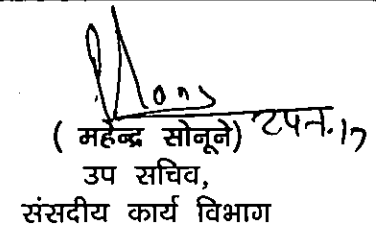 ( महेन्द्र सोनूने)
उप सचिव,
संसदीय कार्य विभाग